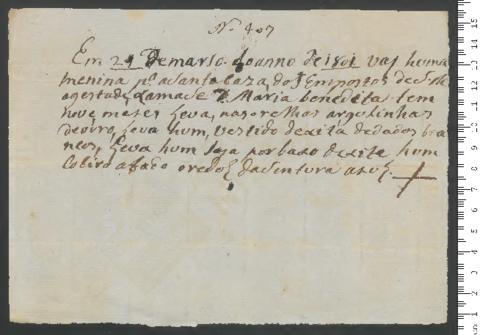 N. 407
Em 29 Demarso doanno de 1801 vaj huma
menina pa asanta Caza, do
agestade, Xamace D. Maria benedita tem
nove mezes Leva, nas orelhas argolinhas
deoiro, Leva hum, vestido dexita dedados bran
cos, Leva hum saja por baxo dexita hum
Coeiro afado oredol dasentura azul